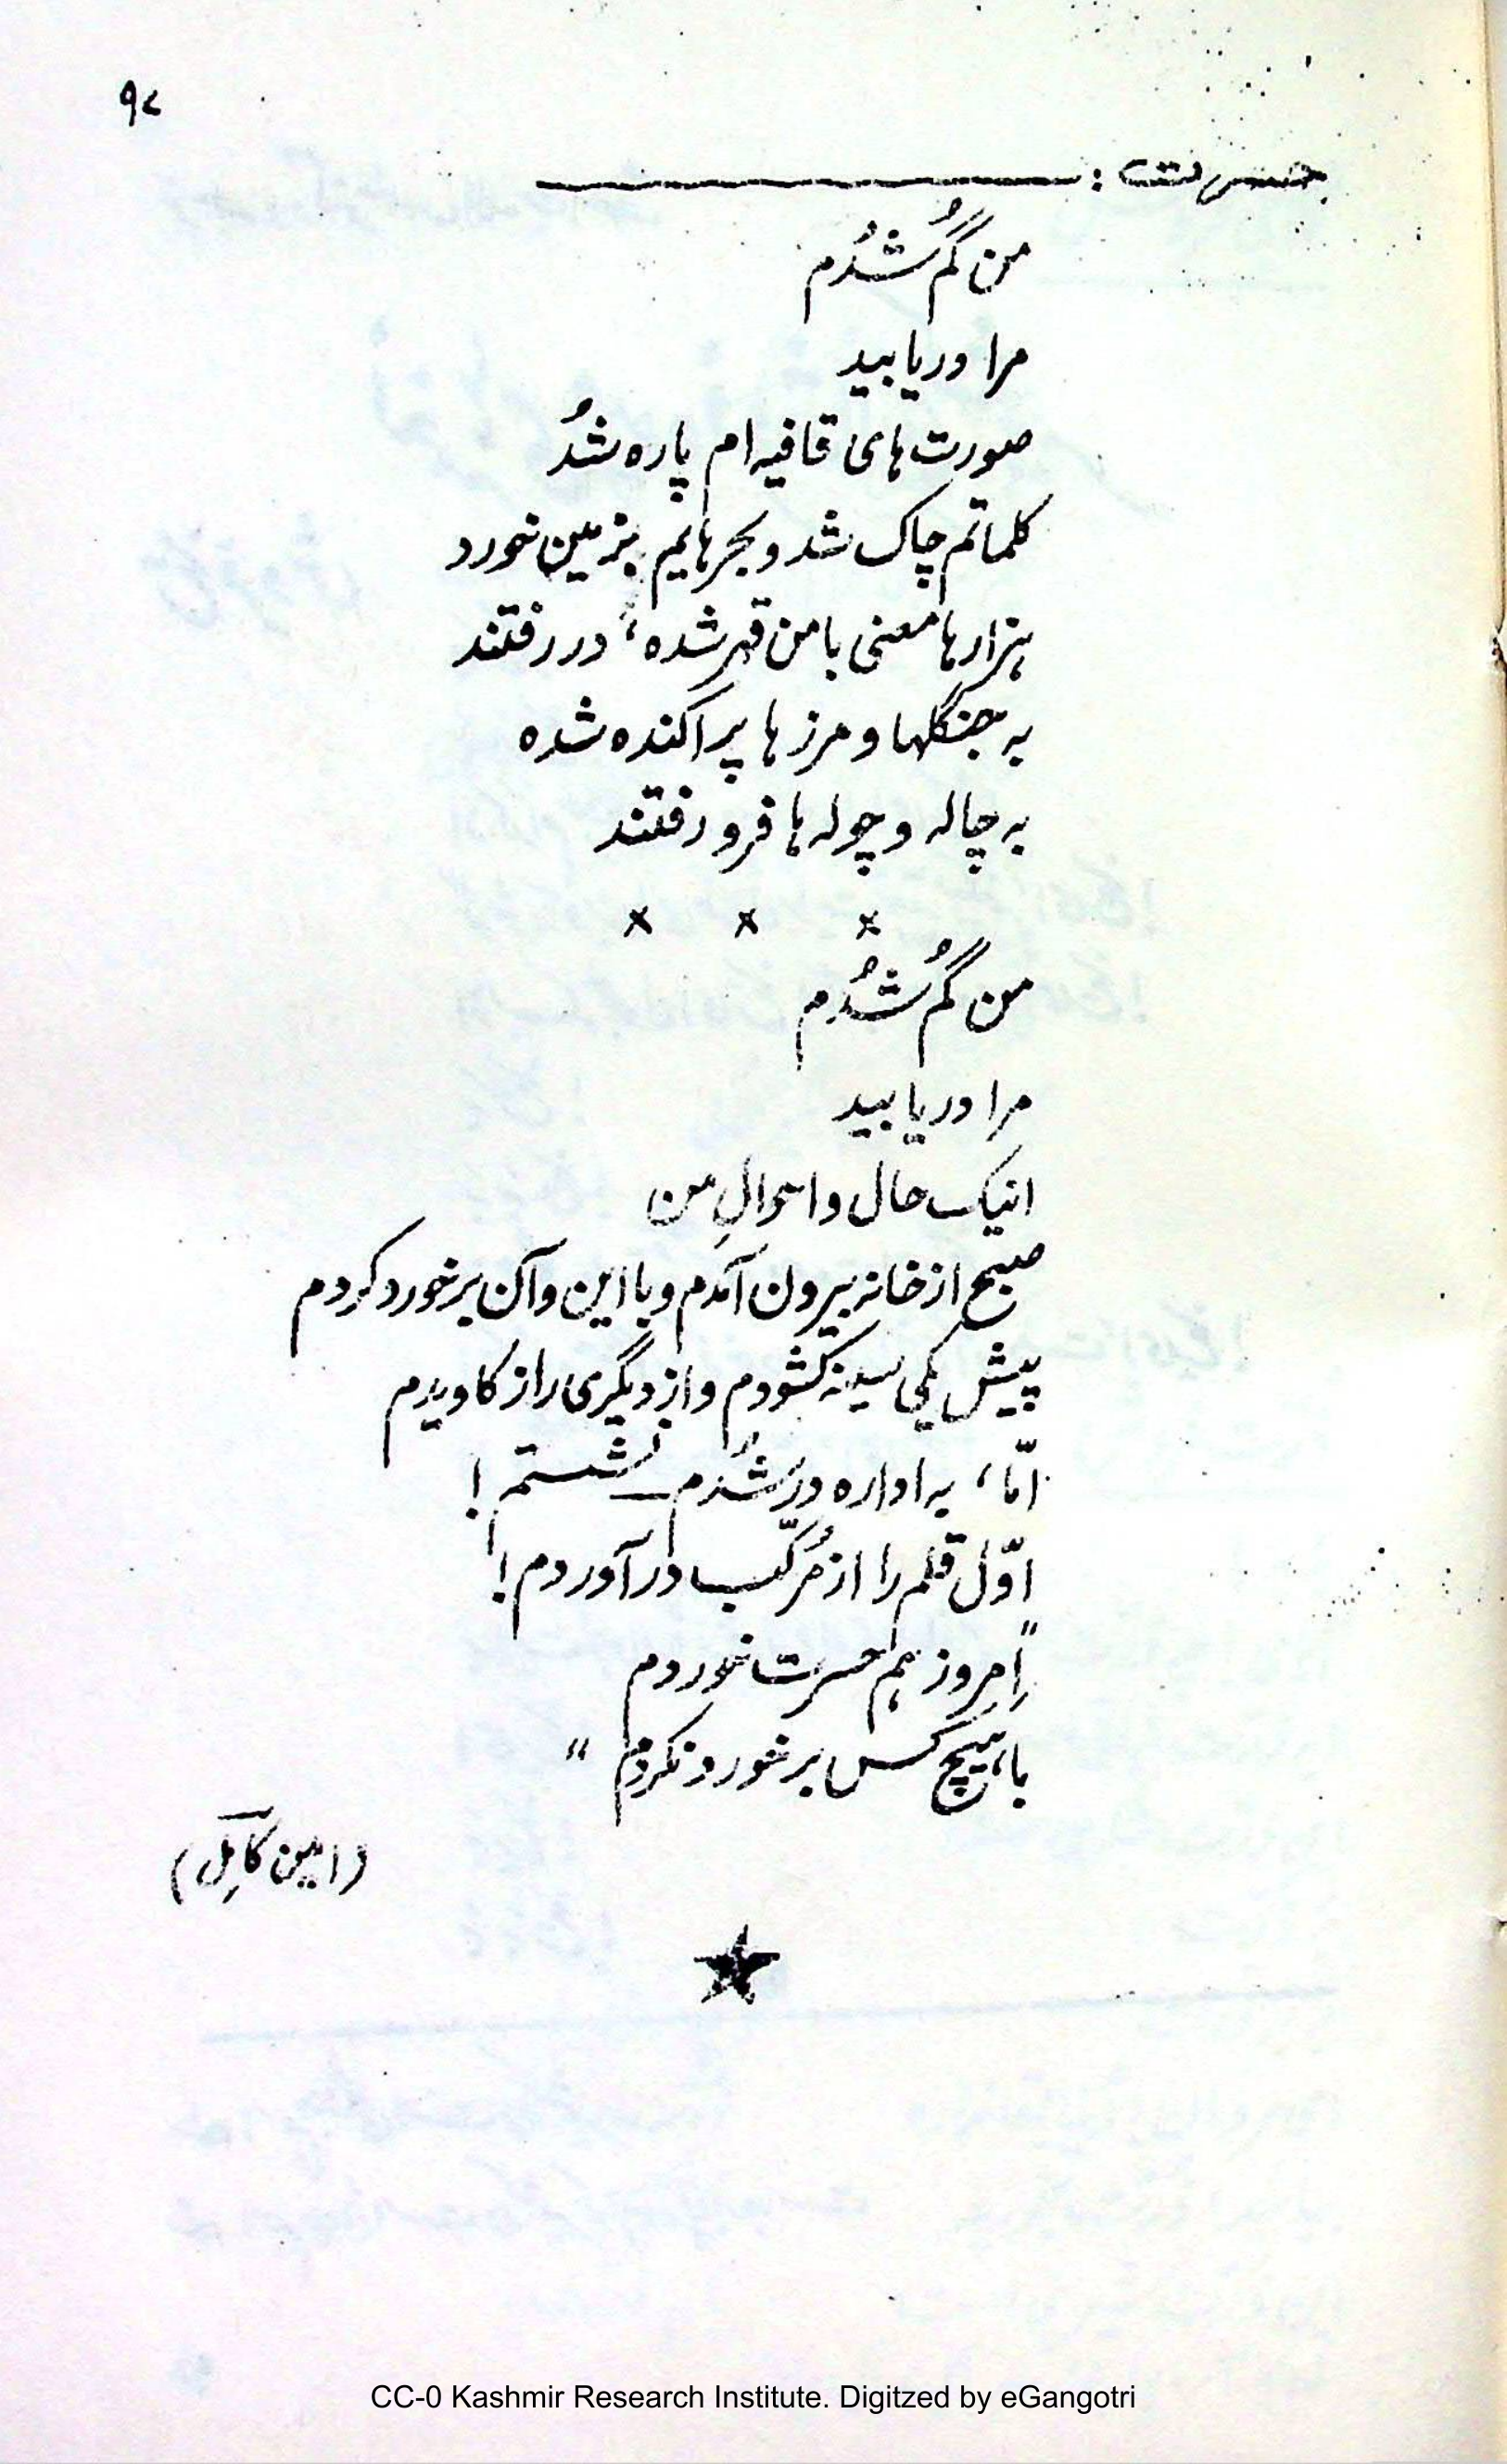 ۹۷
حسرت :
من گُم شُدُم
مرا دریابید
صورت های قافیه ام پاره شُد
کلماتم چاک شد و بحرهایم بزمین خورد
هزارها معنی با من قهر شده، در رفتند
به جنگلها و مرزها پراکنده شده
به چاله و چوله ها فرو رفتند
× × ×
من گُم شُدُم
مرا دریابید
اینک حال و احوالِ من
صبح از خانه بیرون آمدم و با این و آن برخورد کردم
پیش یکی سینه کشودم و از دیگری راز کاویدم
امّا، به اداره در شُدم نشستم !
اوّل قلم را از مُرکّب در آوردم !
"اِمروز هم حسرت خوردم
با هیچ کس برخورد نکردم"
(امین کامِل)
CC-0 Kashmir Research Institute. Digitzed by eGangotri